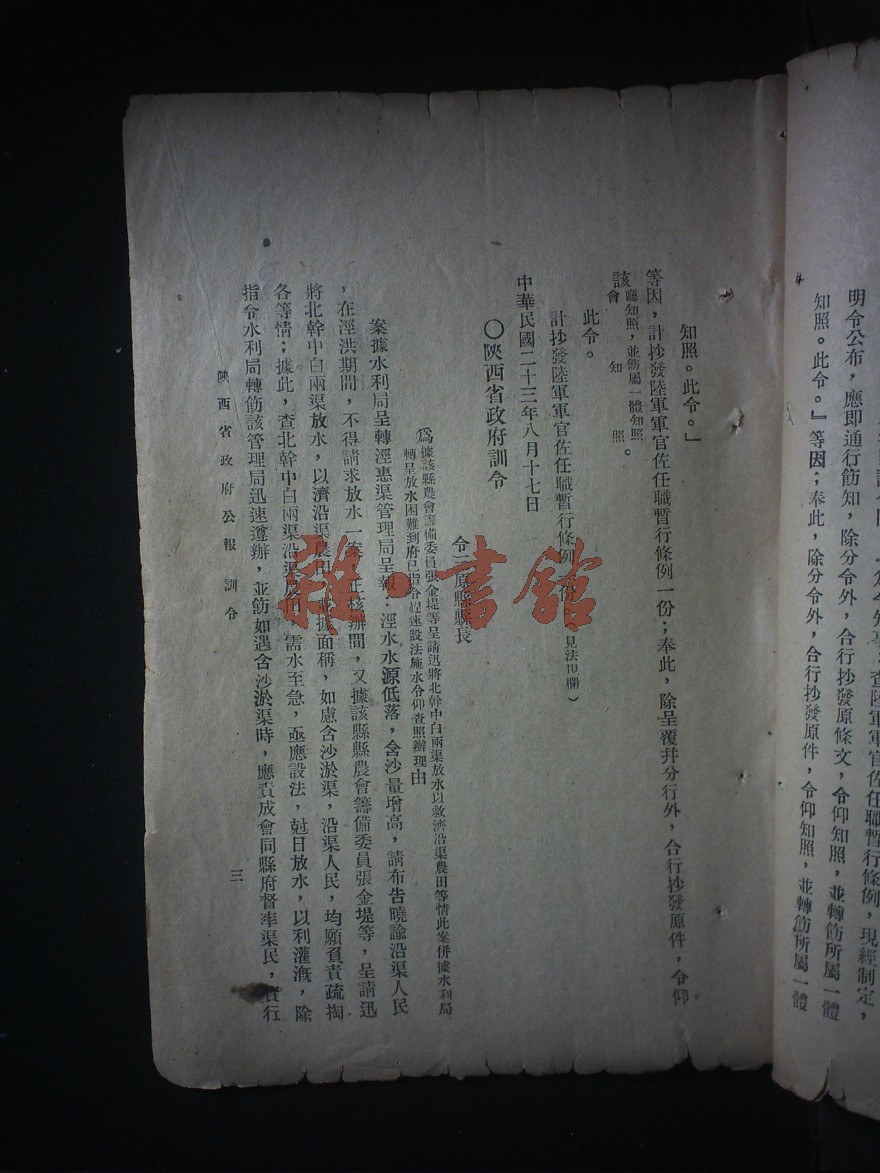 明令公布，應即通行飭知，除分令外，合行抄發原條文，令仰知照，並轉飭所屬一體
知照。此令。』等因；奉此，除分令外，合行抄發原件，令仰知照，並轉飭所屬一體
知照。此令。」
等因，計抄發陸軍軍官佐任職暫行條例一份；奉此，除呈覆并分行外，合行抄發原件，令仰
該
廳知照，並飭屬一體知照
會 知 照
。
此令。
計抄發陸軍軍官佐任職暫行條例一份 見法規欄）
中華民國二十三年八月十七日
〇陝西省政府訓令
令三原縣縣長
為據該縣農會籌備委員張金堤等呈請迅將北幹中白兩渠放水以救濟沿渠農田等情此案併據水利局
轉呈放水困難到府已指令趕速設法施水令仰查照辦理由
案據水利局呈轉涇惠渠管理局呈報：涇水水源低落，含沙量增高，請布告曉諭沿渠人民
，在涇洪期間，不得請求放水一案，正核辦間，又據該縣縣農會籌備委員張金堤等，呈請迅
將北幹中白兩渠放水，以濟沿渠農田，並據面稱，如慮含沙淤渠，沿渠人民，均願負責疏掏
各等情；據此，查北幹中白兩渠沿渠農田，需水至急，亟應設法，尅日放水，以利灌漑，除
指令水利局轉飭該管理局迅速遵辦，並飭如遇含沙淤渠時，應責成會同縣府督率渠民，實行
陝西省政府公報 訓令
三
雜·書館